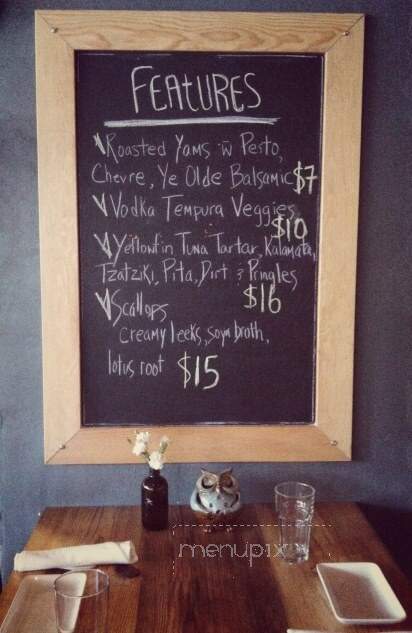 FEAtURES
Roasted Yams w Pesto,
Chevre, Ye Olde Balsamic $7
Vodka Tempura Veggies
$10
Yellowfin Tuna Tartar, Kalamata,
Tzatziki, Pita, Dirt & Pringles
$16
Scallops
creamy leeks, soya broth,
lotus root $15
menupix